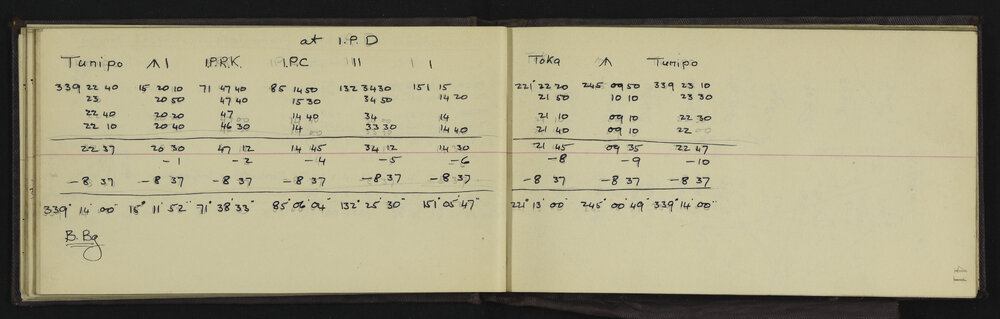 at I.P.D
Tunipo ⩚ I I.P.R.K. I.P.C II I Toka ⩚ Tunipo
339 22 40 15 20 10 71 47 40 85 14 50 132 34 30 151 15 221° 22 20 245 09 50 339 23 10
23 20 50 47 40 15 30 34 50 14 20 21 50 10 10 23 30
22 40 20 20 47 14 40 34 14 21 10 09 10 22 30
22 10 20 40 46 30 14 33 30 14 40 21 40 09 10 22 00
22 37 20 30 47 12 14 45 34 12 14 30 21 45 09 35 22 47
-1 -2 -4 -5 -6 -8 -9 -10
-8 37 -8 37 -8 37 -8 37 -8 37 -8 37 -8 37 -8 37 -8 37
339° 14' 00" 15° 11' 52" 71° 38' 33" 85° 06' 04" 132° 25' 30" 151° 05' 47" 221° 13' 00" 245° 00' 49" 339° 14' 00"
B. Bg